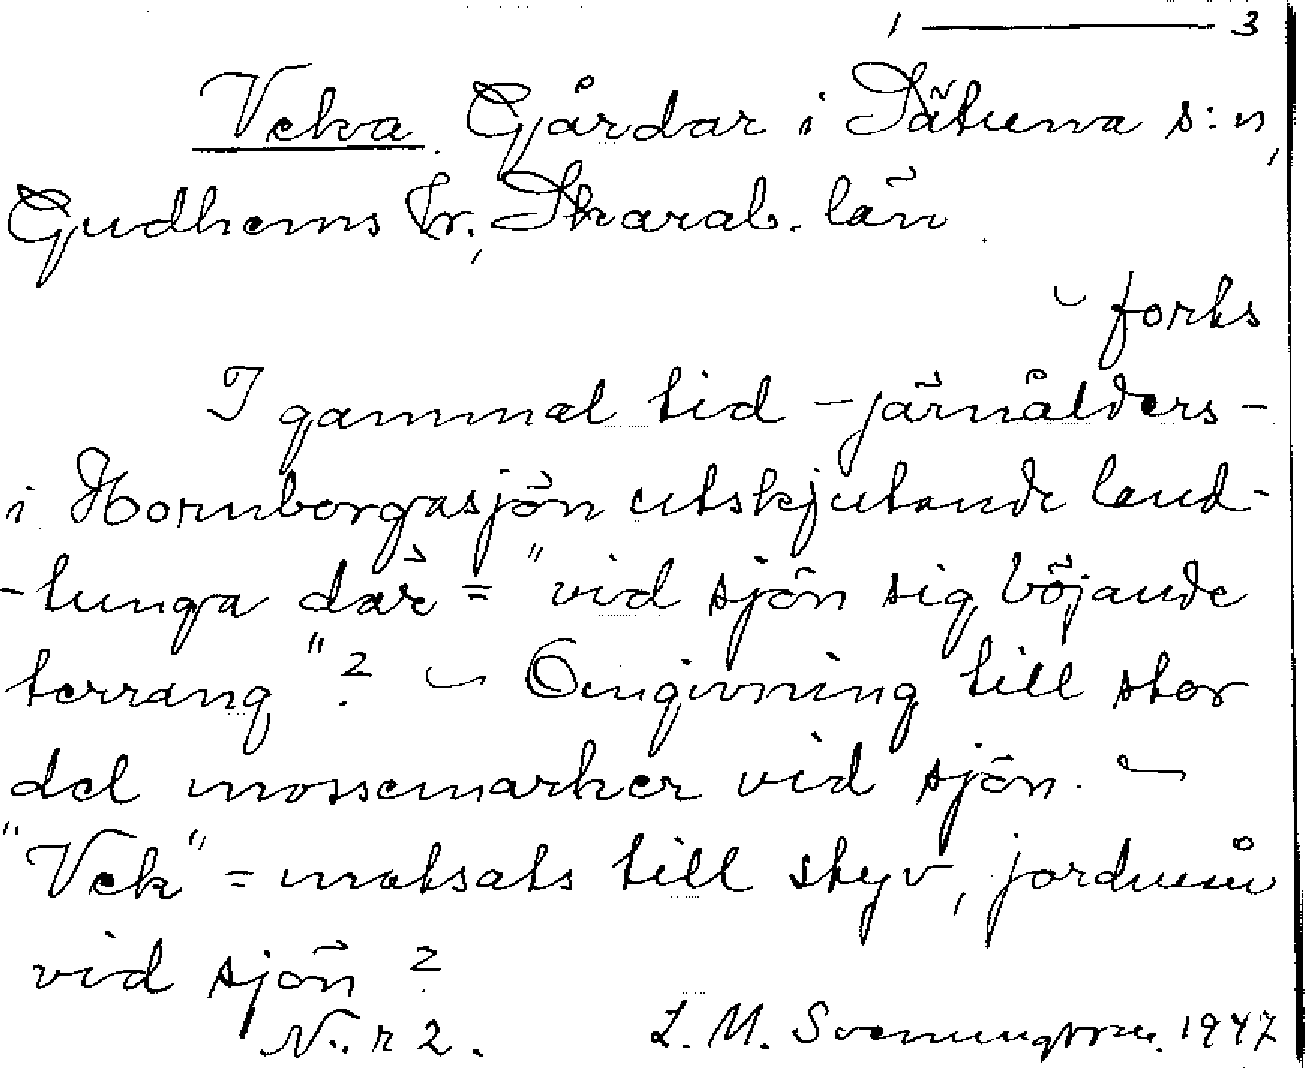 1 ——— 3
Veka. Gårdar i Sätuna s:n,
Gudhems hr., Skarab. län.
~ forts
I gammal tid – järnålders –
i Hornborgasjön utskjutande land-
-tunga där = "vid sjön sig böjande
terräng"? ~ Omgivning till stor
del mossemarker vid sjön. ~
"Vek" = motsats till styv, jordmån
vid sjön?
N:r 2. L. M. Svenungsson. 1947